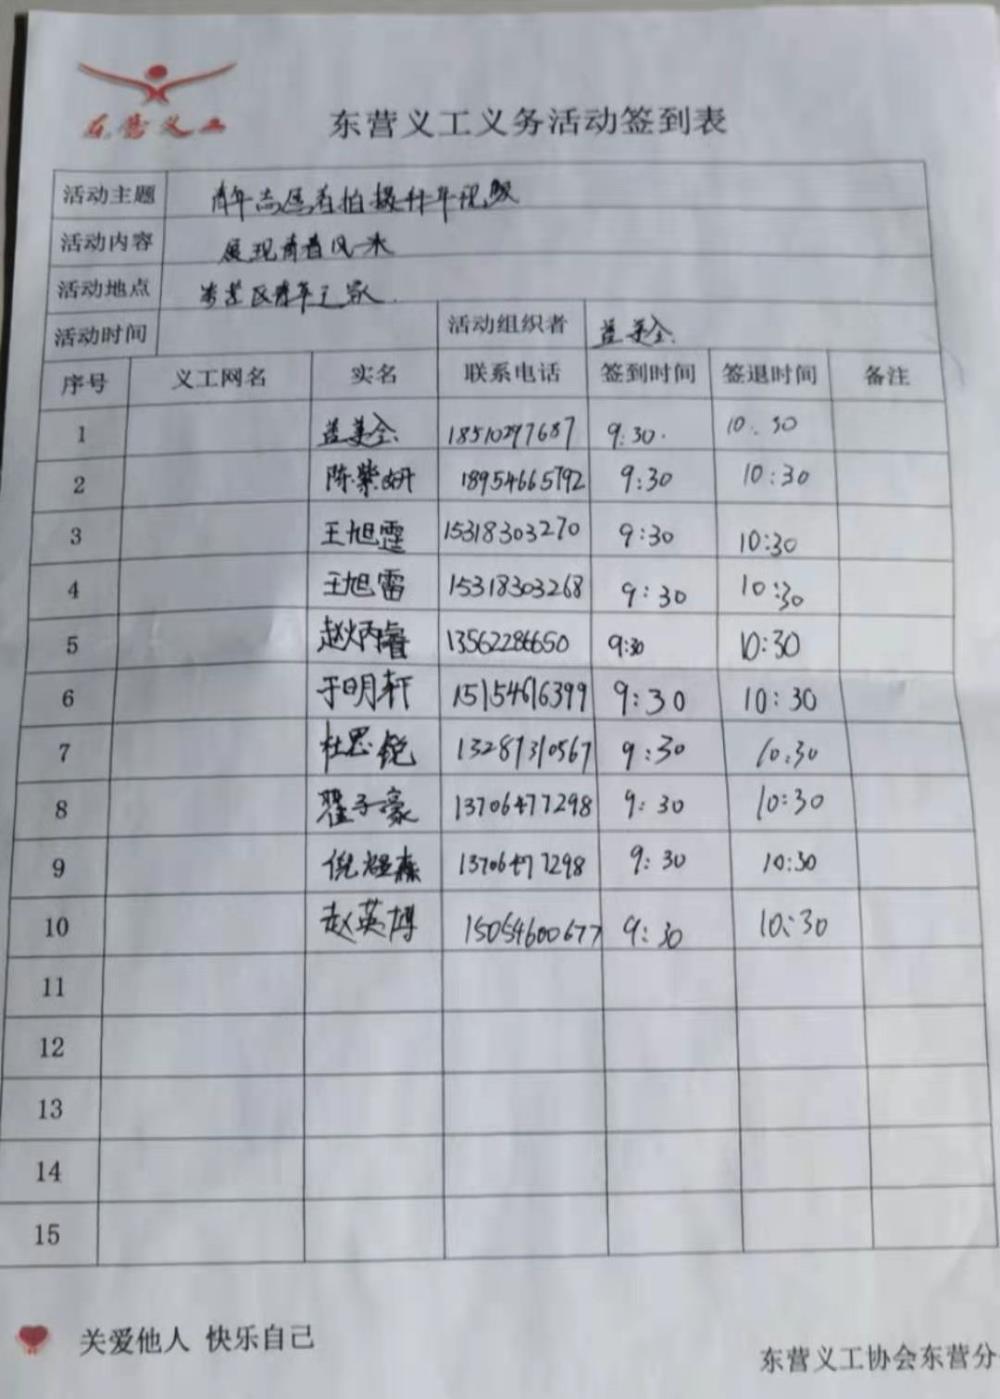 东营义工
东营义工义务活动签到表
活动主题
活动内容 展现青春风采
活动地点 东营区青年之家.
活动时间 活动组织者 盖美全
序号 义工网名 实名 联系电话 签到时间 签退时间 备注
1 盖美全 18510297687 9:30. 10:30
2 陈紫妍 18954665792 9:30 10:30
3 王旭霆 15318303270 9:30 10:30
4 王旭雷 15318303268 9:30 10:30
5 赵炳睿 13562286650 9:30 10:30
6 于明轩 15154616399 9:30 10:30
7 杜思锐 13287310567 9:30 10:30
8 翟子豪 13706477298 9:30 10:30
9 倪煜森 13706477298 9:30 10:30
10 赵英博 15054600677 9:30 10:30
11
12
13
14
15
关爱他人 快乐自己
东营义工协会东营分